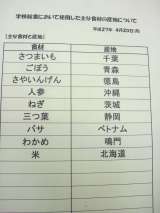 学校給食において使用した主な食材の産地について
平成27年 4月20日(月)
【主な食材と産地】
食材 産地
さつまいも 千葉
ごぼう 青森
さやいんげん 徳島
人参 沖縄
ねぎ 茨城
三つ葉 静岡
バサ ベトナム
わかめ 鳴門
米 北海道